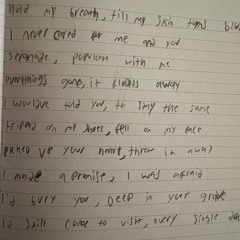 Hold my breath, till my skin turns blue
I never cared for me and you
serenade, with me
everythings gone, it floats away
I wouldve told you, to stay the same
tripped on my shoes, fell on my face
picked up your heart, threw it away
I made a promise, I was afraid
I'd bury you, Deep in your grave
I'd still come to visit, every single day